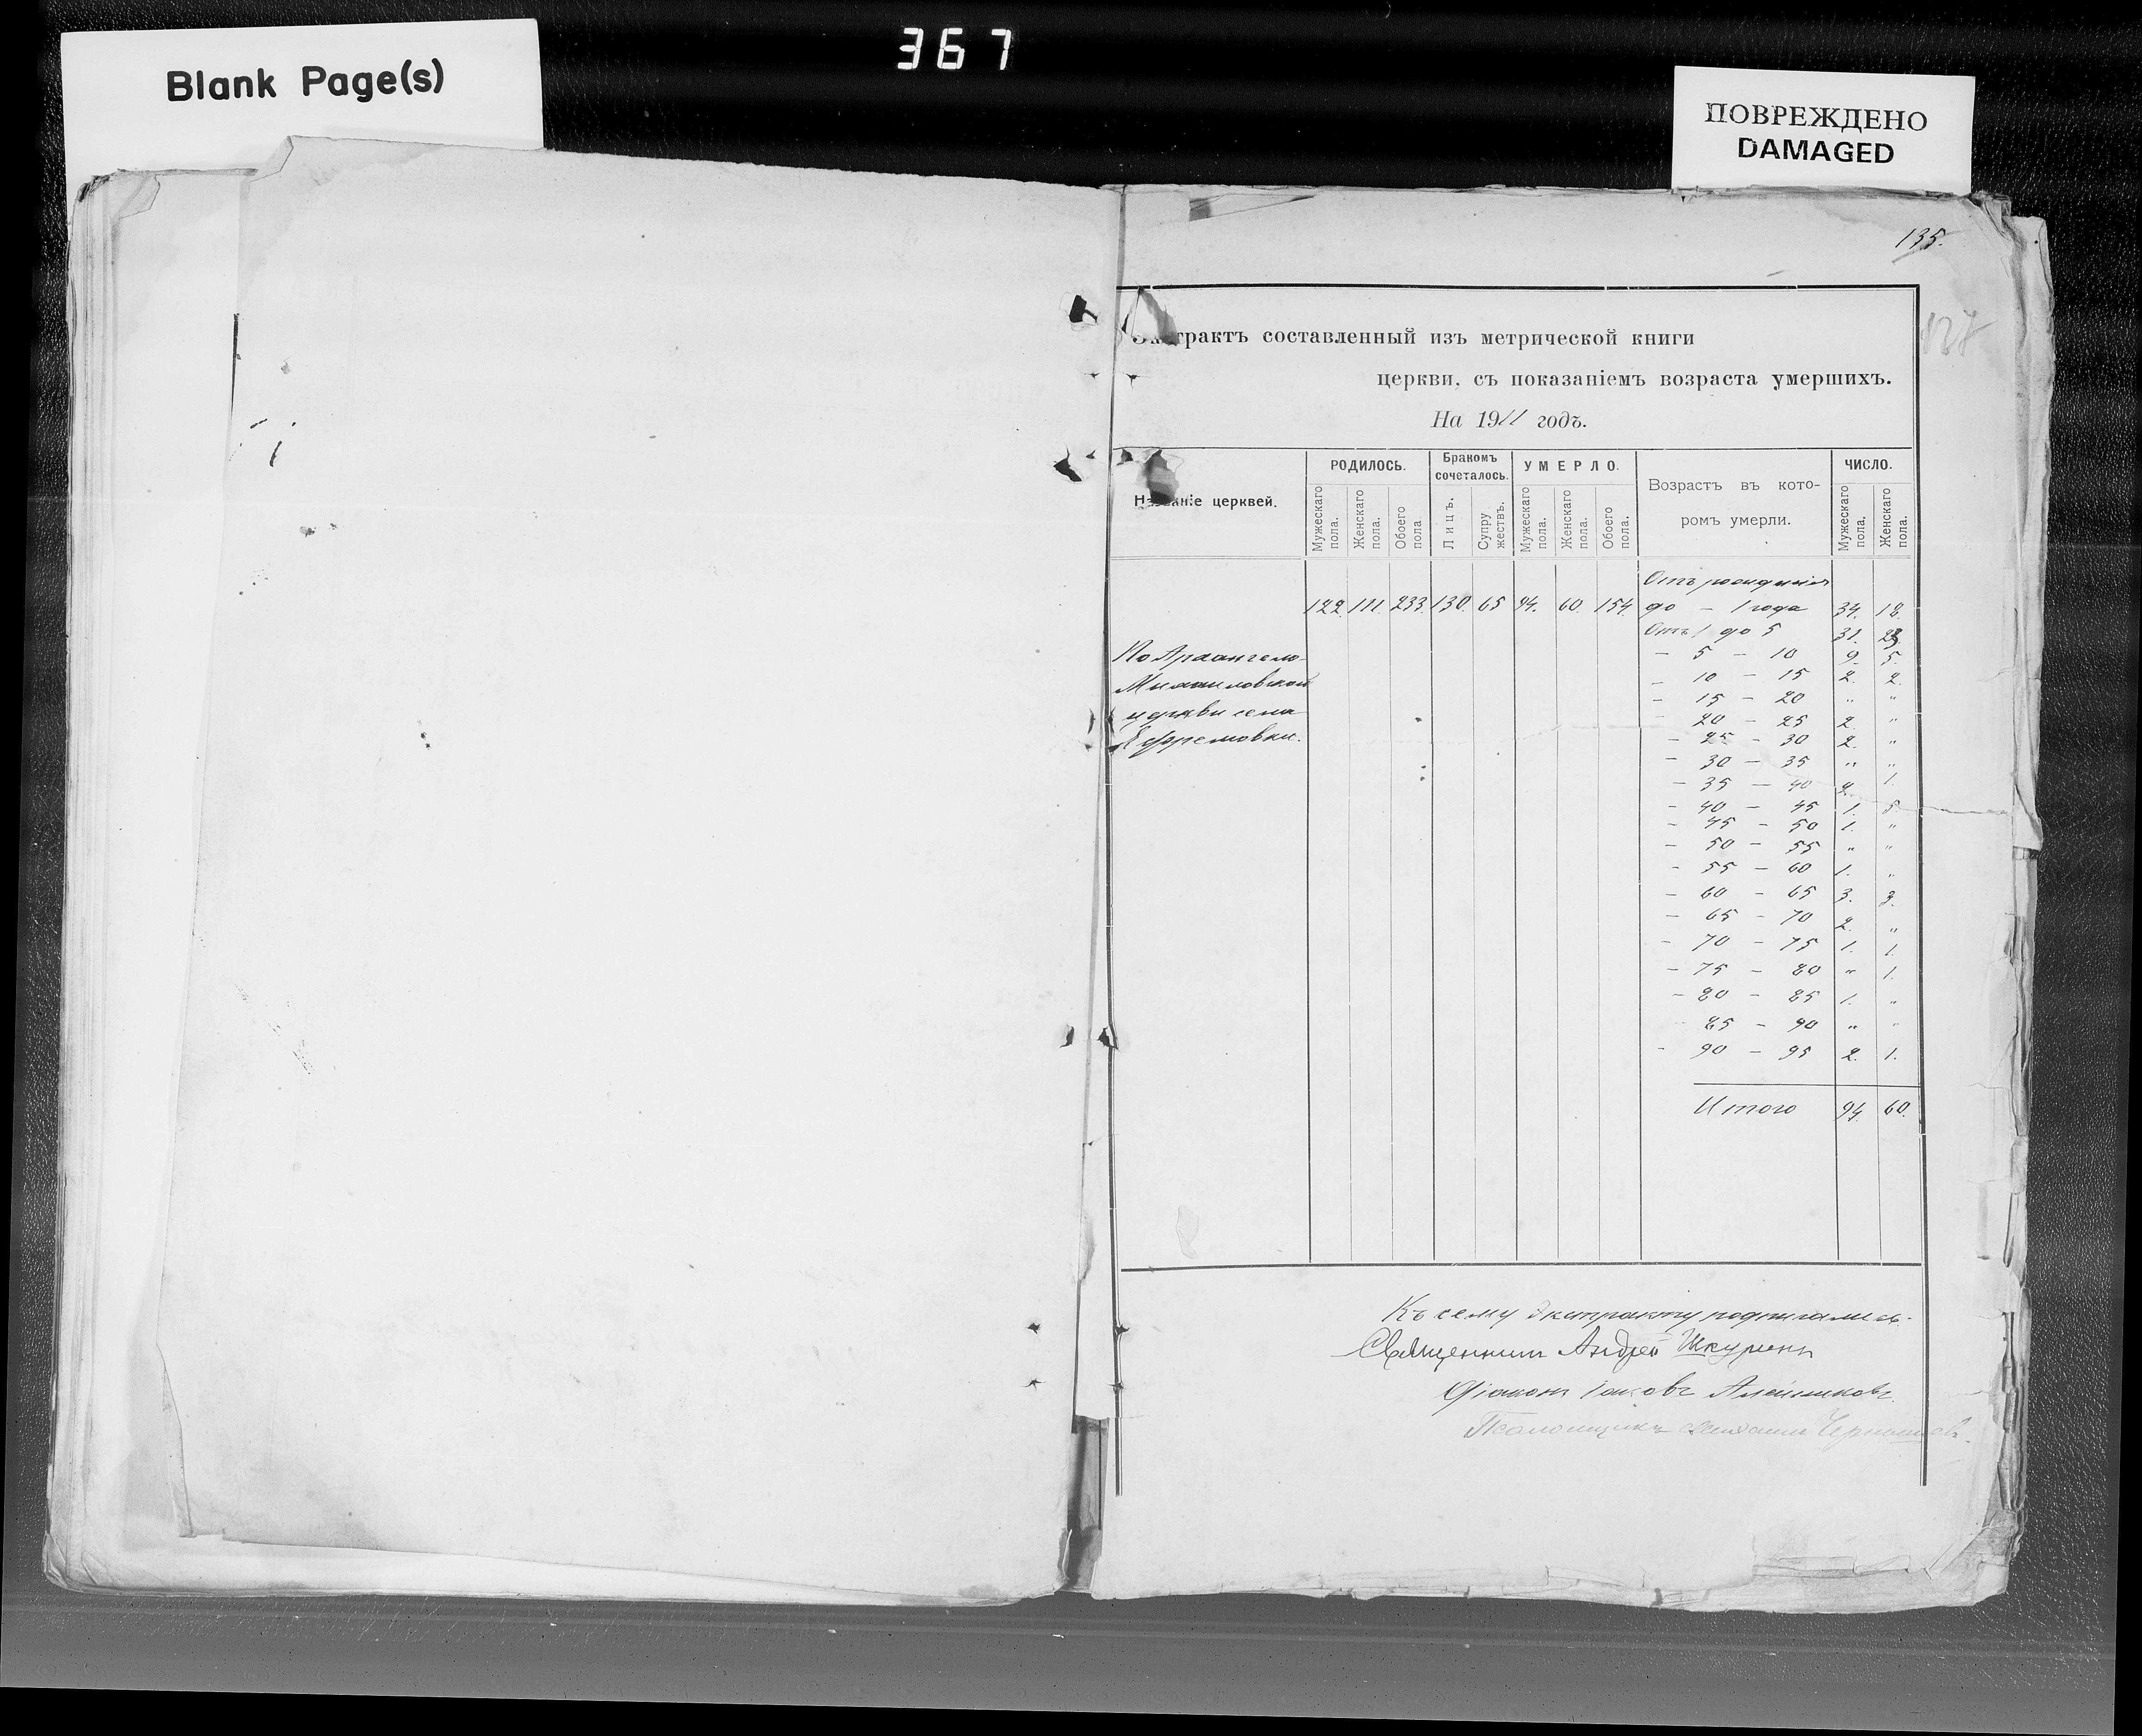 367
Blank Page(s)
ПОВРЕЖДЕНО
DAMAGED
135.
137
Экстрактъ составленный изъ метрической книги
церкви, съ показаніемъ возраста умершихъ.
На 1911 годъ.
Названіе церквей.
РОДИЛОСЬ.
Мужескаго пола.
Женскаго пола.
Обоего пола
Бракомъ сочеталось.
Лицъ.
Супру жествъ.
УМЕРЛО.
Мужескаго пола.
Женскаго пола.
Обоего пола.
Возрастъ въ кото-
ромъ умерли.
ЧИСЛО.
Мужескаго пола.
Женскаго пола.
По Архангело-
Михаиловской
церкви села
Ефремовки.
122. 111. 233. 130. 65 94. 60. 154
Отъ рожденія
до – 1 года 34. 18.
Отъ 1 до 5 31. 23.
– 5 – 10 9. 5.
– 10 – 15 2. 2.
– 15 – 20 " "
– 20 – 25 2. "
– 25 – 30 2. "
– 30 – 35 " "
– 35 – 40 2. 1.
– 40 – 45 1. 5.
– 45 – 50 1. "
– 50 – 55 " "
– 55 – 60 1. "
– 60 – 65 3. 3.
– 65 – 70 2. "
– 70 – 75 1. 1.
– 75 – 80 " 1.
– 80 – 85 1. "
– 85 – 90 " "
– 90 – 95 2. 1.
Итого 94. 60.
Къ сему экстракту подписались:
Священникъ Андрей Шкуринъ
Діаконъ Іаковъ Алейниковъ
Псаломщикъ Михаилъ Чернышевъ.